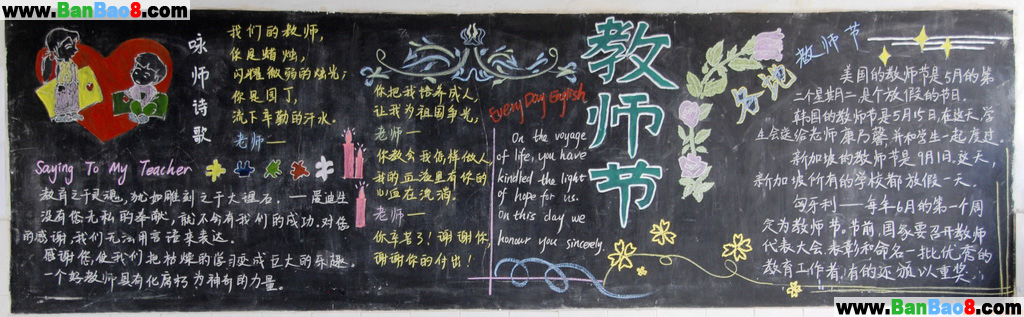 www.BanBao8.com
www.BanBao8.com
咏师诗歌
我们的教师,
你是蜡烛,
闪耀微弱的烛光;
你是园丁,
流下辛勤的汗水.
老师——
你把我培养成人,
让我为祖国争光,
老师——
你教会我怎样做人,
我的血液里有你的
心血在流淌.
老师——
你辛苦了!谢谢你,
谢谢你的付出!
Saying To My Teacher
教育之于灵魂,犹如雕刻之于大理石.——爱迪生
没有您无私的奉献,就不会有我们的成功.对您
的感谢,我们无法用言语来表达.
感谢您使我们把枯燥的学习变成巨大的乐趣.
一个好教师具有化腐朽为神奇的力量.
Every Day English
On the voyage
of life, you have
kindled the light
of hope for us.
On this day we
honour you sincerely.
教师节
教师节
美国的教师节是5月的第
二个星期二是个放假的节日.
韩国的教师节是5月15日在这天,学
生会送给老师康乃馨,并和学生一起度过.
新加坡的教师节是9月1日.这天,
新加坡所有的学校都放假一天.
匈牙利——每年6月的第一个周
定为教师节.节前,国家要召开教师
代表大会,表彰和命名一批优秀的
教育工作者,有的还颁以重奖.
www.BanBao8.com